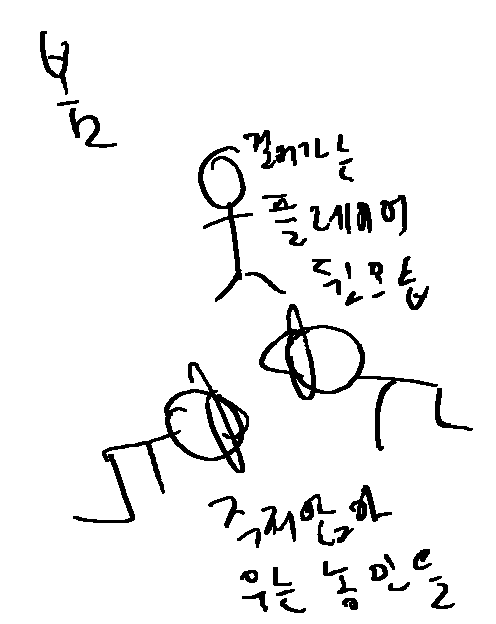 걸어가는
플레이어
뒷모습
주저앉아
우는 농민들